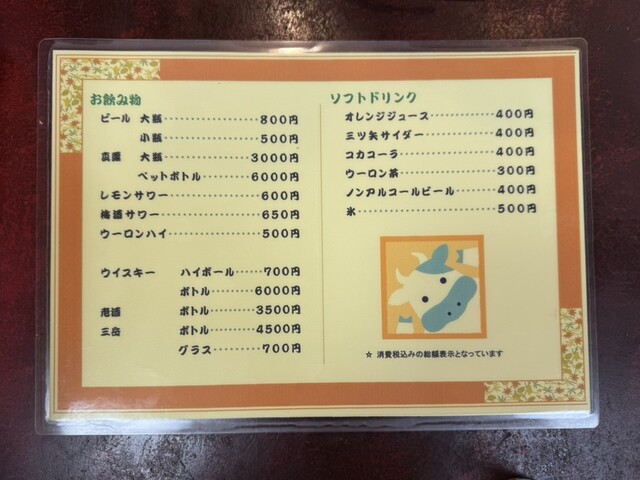 お飲み物
ビール 大瓶 800円
小瓶 500円
真露 大瓶 3000円
ペットボトル 6000円
レモンサワー 600円
梅酒サワー 650円
ウーロンハイ 500円
ウイスキー ハイボール 700円
ボトル 6000円
老酒 ボトル 3500円
三岳 ボトル 4500円
グラス 700円
ソフトドリンク
オレンジジュース 400円
三ツ矢サイダー 400円
コカコーラ 400円
ウーロン茶 300円
ノンアルコールビール 400円
氷 500円
☆ 消費税込みの総額表示となっています